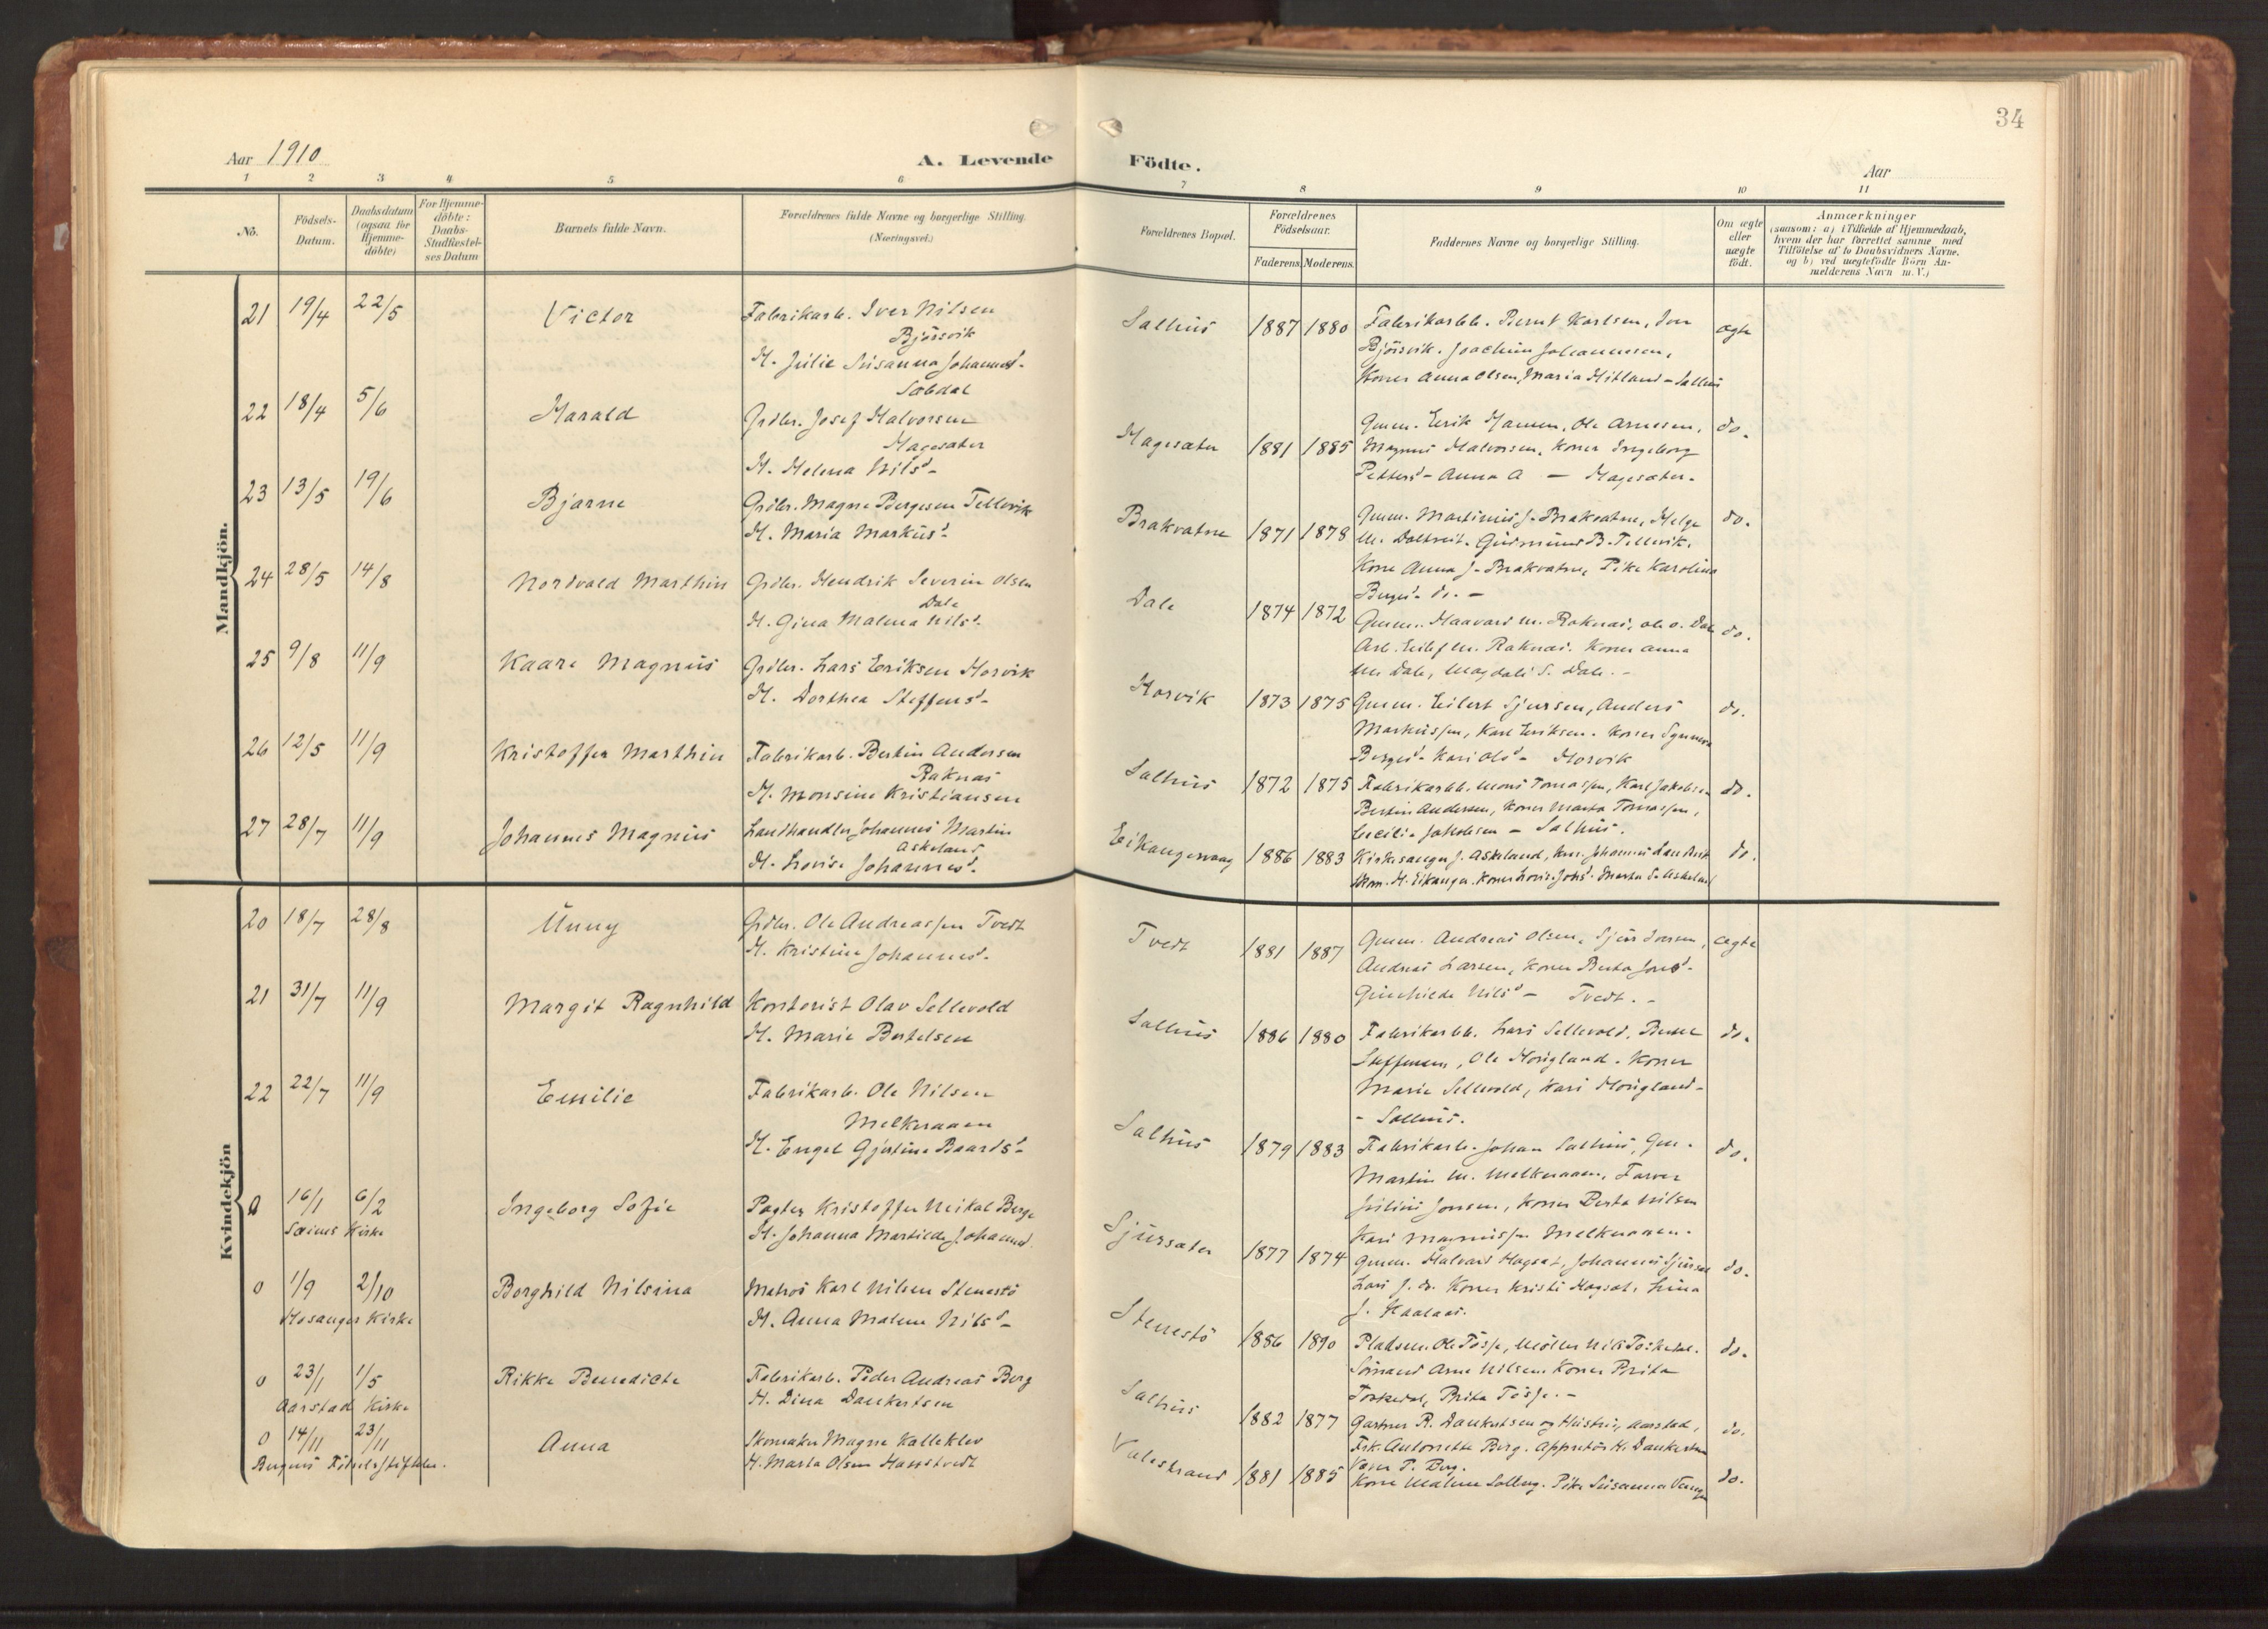 34
Aar 1910
A. Levende Födte.
Aar
1 2 3 4 5 6 7 8 9 10 11
No.
Födsels-Datum.
Daabsdatum (ogsaa for Hjemme-döbte)
For Hjemme-döbte: Daabs-Stadfæstel-ses Datum
Barnets fulde Navn.
Forældrenes fulde Navne og borgerlige Stilling. (Næringsvei.)
Forældrenes Bopæl.
Forældrenes Födselsaar.
Faderens. Moderens.
Faddernes Navne og borgerlige Stilling.
Om ægte eller uægte födt.
Anmærkninger
(saasom: a) i Tilfælde af Hjemmedaab, hvem der har forrettet samme med Tilföielse af to Daabsvidners Navne, og b) ved uægtefödte Börn An-melderens Navn m. V.)
Mandkjön.
21 19/4 22/5 Victor Fabrikarb. Iver Nilsen
Bjørsvik
H. Julie Susanna Johannesd.
Salhus 1887 1880 Fabrikarbb. Bernt Karlsen, Iver
Bjørsvik. Joachim Johannesen,
Koner Anna Olsen, Maria Hitland - Salhus
ægte
22 18/4 5/6 Harald Grdbr. Josef Halvorsen
Hagesæter
H. Helena Nilsd.
Hagesæter 1881 1885 Gmm. Erik Hansen, Ole Arnesen,
Magnus Halvorsen, Koner Ingeborg
Petters d. Anna A — Hagesæter.
do.
23 13/5 19/6 Bjarne Grdbr. Magne Bergesen Tellevik
H. Maria Markusd.
Brakvatne 1871 1878 Gmm. Martinus J. Brakvatne, Helge
M. Gudmund B. Tellevik.
Kone Anna J. Brakvatne, Pike Karolina
Bergesd. do. -
do.
24 28/5 14/8 Nordvald Marthin Grdbr. Hendrik Severin Olsen
Dale
H. Gina Malena Nilsd.
Dale 1874 1872 Gmm. Haavard M. Raknes, Ole O. Dale
Arb. Eilef M. Raknes. Koner Anna
Dale, Magdali S. Dale. -
do.
25 9/8 11/9 Kaare Magnus Grdbr. Lars Eriksen Horvik
H. Dorthea Steffensd.
Horvik 1873 1875 Gmm. Eilert Sjursen, Anders
Markussen, Karl Eriksen. Koner Synneva
Bergesd. Kari Olsd. Horvik
do.
26 12/5 11/9 Kristoffer Marthin Fabrikarb. Bertin Andersen
Raknes
H. Monsine Kristiansen
Salhus 1872 1875 Fabrikarbb. Mons Tomassen, Karl Jakobsen
Bertin Andersen, Koner Marta Tomassen,
Cecilia Jakobsen - Salhus.
do.
27 28/7 11/9 Johannes Magnus Landhandler Johannes Martin
Askeland
H. Lovise Johannesd.
Eikangervaag 1886 1883 Kirkesanger J. Askeland, Johannes
Skom. H. Eikanger. Koner Lovise Johsd. Marta S. Askeland
do.
Kvindekjön
20 18/7 28/8 Unny Grdbr. Ole Andreassen Tvedt
H. Kristine Johannesd.
Tvedt 1881 1887 Gmm. Andreas Olsen, Sjur Iversen,
Andreas Larsen, Koner Berta Jonsd.
Gunhilda Nilsd. - Tvedt. -
ægte
21 31/7 11/9 Margit Ragnhild Kontorist Olav Sellevold
H. Marie Bertelsen
Salhus 1886 1880 Fabrikarbb. Lars Sellevold,
Steffensen, Ole Hougland. Koner
Marie Sellevold, Kari Hougland -
- Salhus.
do.
22 22/7 11/9 Emilie Fabrikarb. Ole Nilsen
Melkeraaen
H. Engel Gjertine Baardsd.
Salhus 1879 1883 Fabrikarb. Johan Salhus, Gm.
Martin M. Melkeraaen, Farver
Julius Jensen, Koner Berta Nilsen
Kari Magnussen Melkeraaen.
do.
0 16/1 6/2 Ingeborg Sofie Pagter Kristoffer Meikal Berge
Sæims Kirke
H. Johanna Martilda Johannesd.
Sjursæter 1877 1874 Gmm. Halvard Hagsæt, Johannes Sjursæt
Lars J. do. Koner Kristi Hagsæt, Lina
J. Kaalaas.
do.
0 1/9 2/10 Borghild Nilsina Matros Karl Nilsen Stenestø
Hosanger Kirke
H. Anna Malene Nilsd.
Stenestø 1886 1890 Pladsm. Ole Tosse, Møller Nils Toskedal.
Sømand Arne Nilsen Koner Brita
Toskedal, Brita Tosse. -
do.
0 23/1 1/5 Rikke Benedicte Fabrikarb. Peder Andreas Berg
Aarstad Kirke
H. Dina Dankertsen
Salhus 1882 1877 Gartner R. Dankertsen og Hustru, Aarstad,
Frk. Antonette Berg. Appretør H. Dankertsen
P. Berg.
do.
0 14/11 23/11 Anna Skomaker Magne Kalleklev
Bergens Fødselsstiftelse.
H. Marta Olsen Hanstvedt
Valestrand 1881 1885 Kone Malene Solberg. Pike Susanna
do.